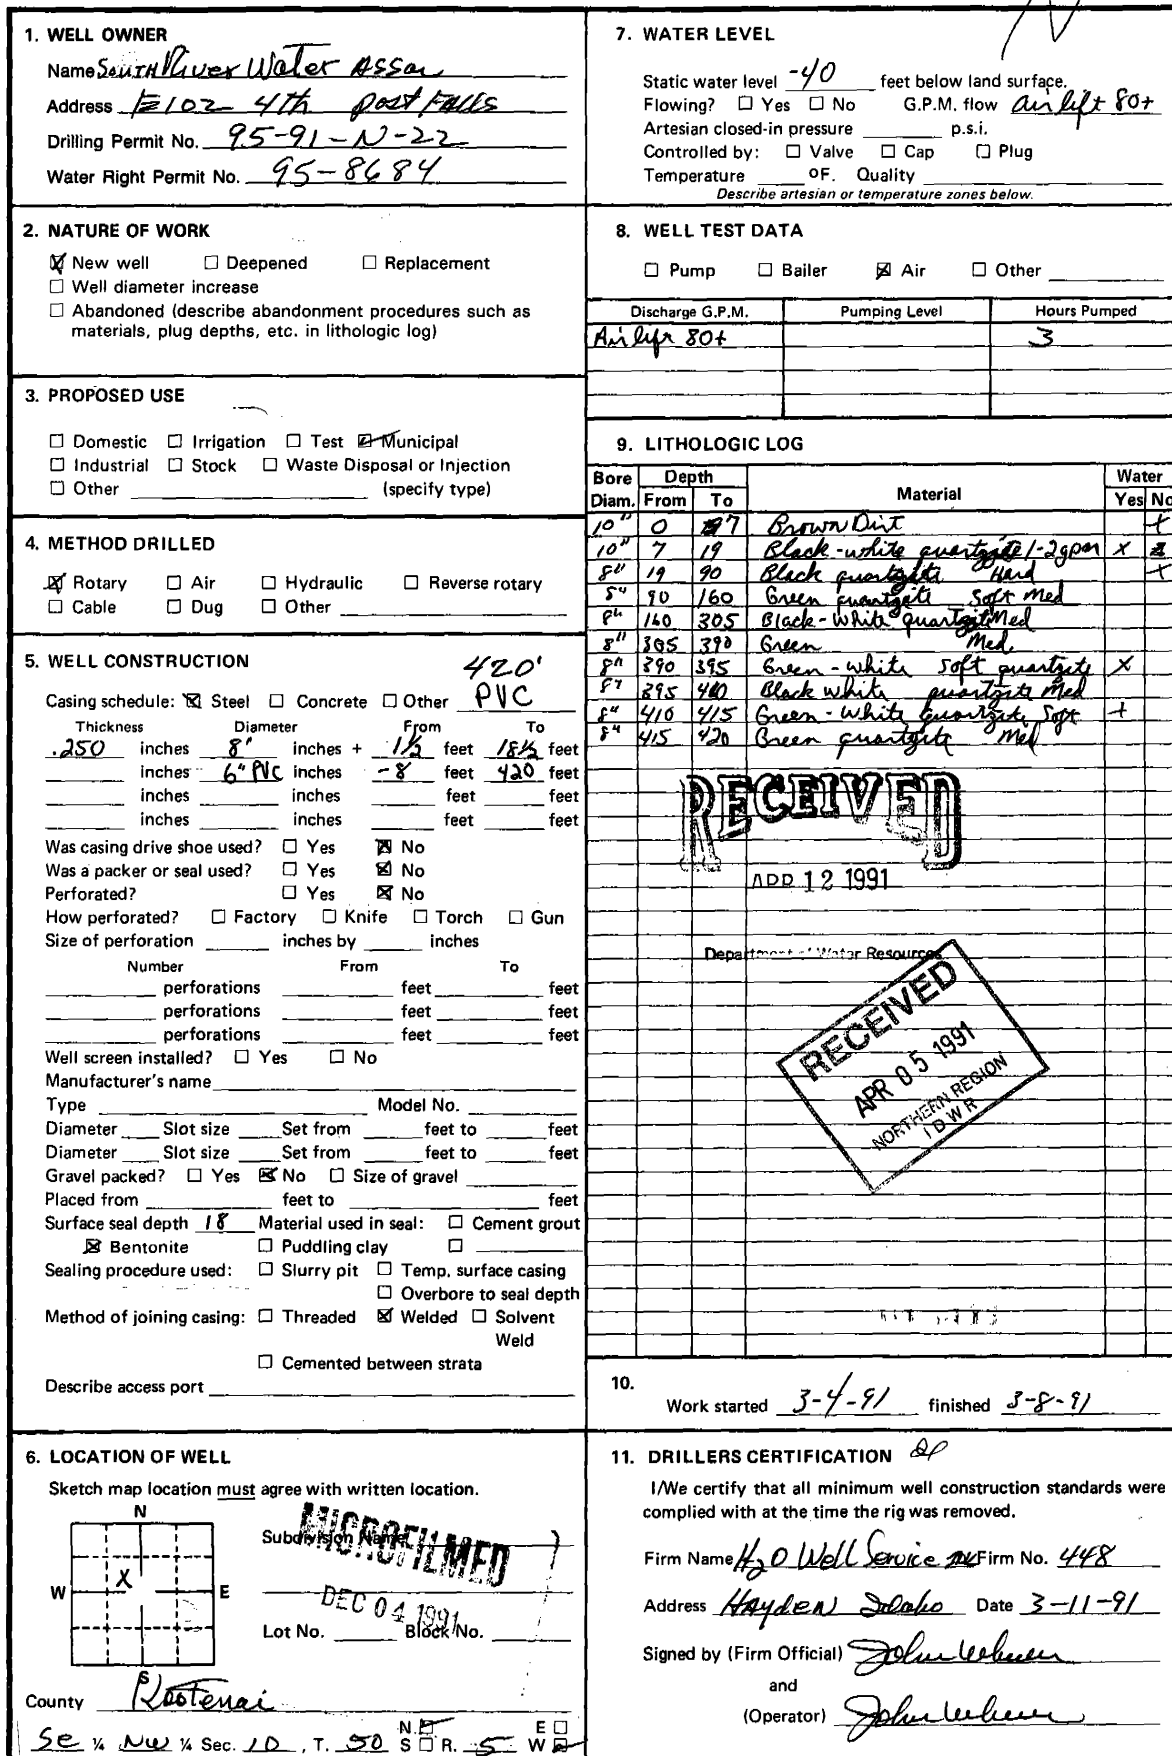 1. WELL OWNER
Name South River Water Assn
Address E102 4th Post Falls
Drilling Permit No. 95-91-N-22
Water Right Permit No. 95-8684
2. NATURE OF WORK
New well Deepened Replacement
Well diameter increase
Abandoned (describe abandonment procedures such as
materials, plug depths, etc. in lithologic log)
3. PROPOSED USE
Domestic Irrigation Test Municipal
Industrial Stock Waste Disposal or Injection
Other (specify type)
4. METHOD DRILLED
Rotary Air Hydraulic Reverse rotary
Cable Dug Other
5. WELL CONSTRUCTION 420'
Casing schedule: Steel Concrete Other PVC
Thickness Diameter From To
.250 inches 8" inches + 1½ feet 18½ feet
inches 6" PVC inches -8 feet 420 feet
inches inches feet feet
inches inches feet feet
Was casing drive shoe used? Yes No
Was a packer or seal used? Yes No
Perforated? Yes No
How perforated? Factory Knife Torch Gun
Size of perforation inches by inches
Number From To
perforations feet feet
perforations feet feet
perforations feet feet
Well screen installed? Yes No
Manufacturer's name
Type Model No.
Diameter Slot size Set from feet to feet
Diameter Slot size Set from feet to feet
Gravel packed? Yes No Size of gravel
Placed from feet to feet
Surface seal depth 18 Material used in seal: Cement grout
Bentonite Puddling clay
Sealing procedure used: Slurry pit Temp. surface casing
Overbore to seal depth
Method of joining casing: Threaded Welded Solvent
Weld
Cemented between strata
Describe access port
6. LOCATION OF WELL
Sketch map location must agree with written location.
N
Subdivision Name
MICROFILMED
W X E
DEC 04 1991
Lot No. Block No.
S
County Kootenai
N. E
SE ¼ NW ¼ Sec. 10, T. 50 S R. 5 W
7. WATER LEVEL
Static water level -40 feet below land surface.
Flowing? Yes No G.P.M. flow air lift 80+
Artesian closed-in pressure p.s.i.
Controlled by: Valve Cap Plug
Temperature OF. Quality
Describe artesian or temperature zones below.
8. WELL TEST DATA
Pump Bailer Air Other
Discharge G.P.M. Pumping Level Hours Pumped
Air lift 80+ 3
9. LITHOLOGIC LOG
Bore Depth Water
Diam. From To Material Yes No
10" 0 7 Brown Dirt +
10" 7 19 Black-white quartzite 1-2gpm X
8" 19 90 Black quartzite Hard +
8" 90 160 Green quartzite Soft Med
8" 160 305 Black-White quartzite Med
8" 305 390 Green Med
8" 390 395 Green-White Soft quartzite X
8" 395 410 Black White quartzite Med
8" 410 415 Green-White quartzite Soft +
8" 415 420 Green quartzite Med
RECEIVED
APR 12 1991
Department of Water Resources
RECEIVED
APR 05 1991
NORTHERN REGION
IDWR
10.
Work started 3-4-91 finished 3-8-91
11. DRILLERS CERTIFICATION
I/We certify that all minimum well construction standards were
complied with at the time the rig was removed.
Firm Name H2O Well Service Firm No. 448
Address Hayden Idaho Date 3-11-91
Signed by (Firm Official)
and
(Operator)